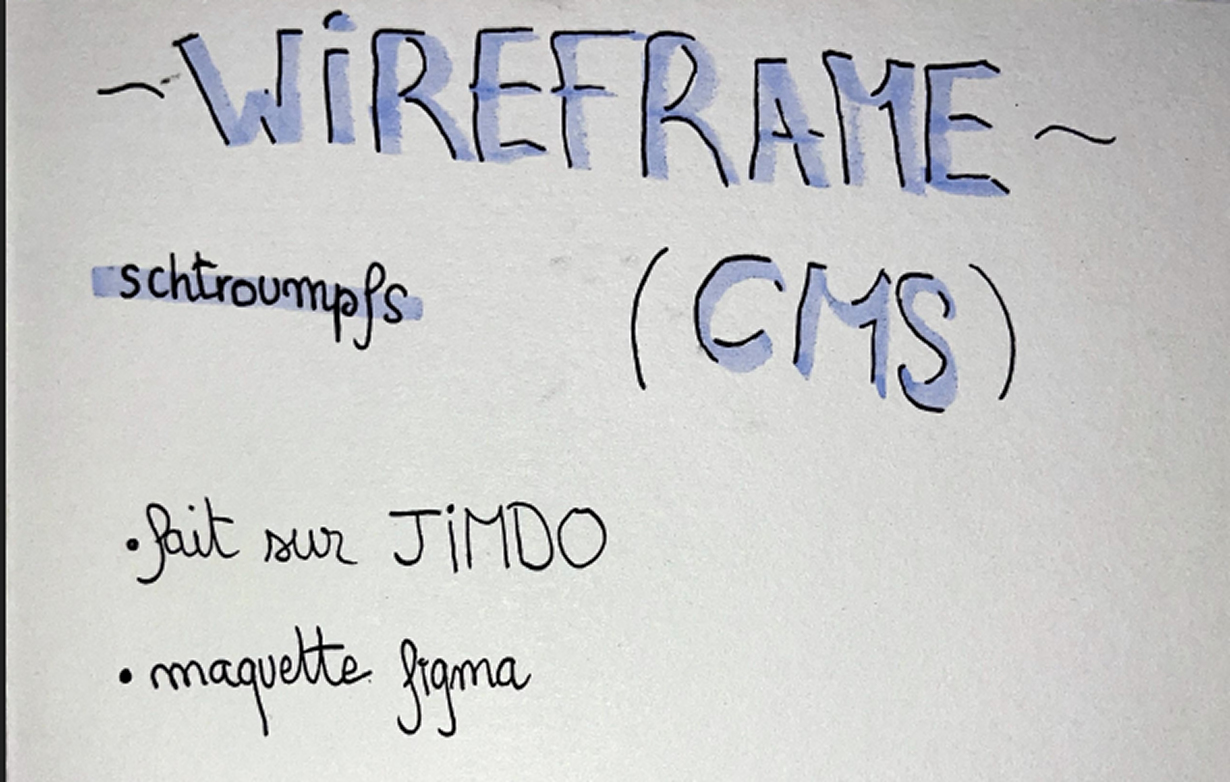 ~WiREFRAME~
schtroumpfs (CMS)
• fait sur JiMDO
• maquette figma